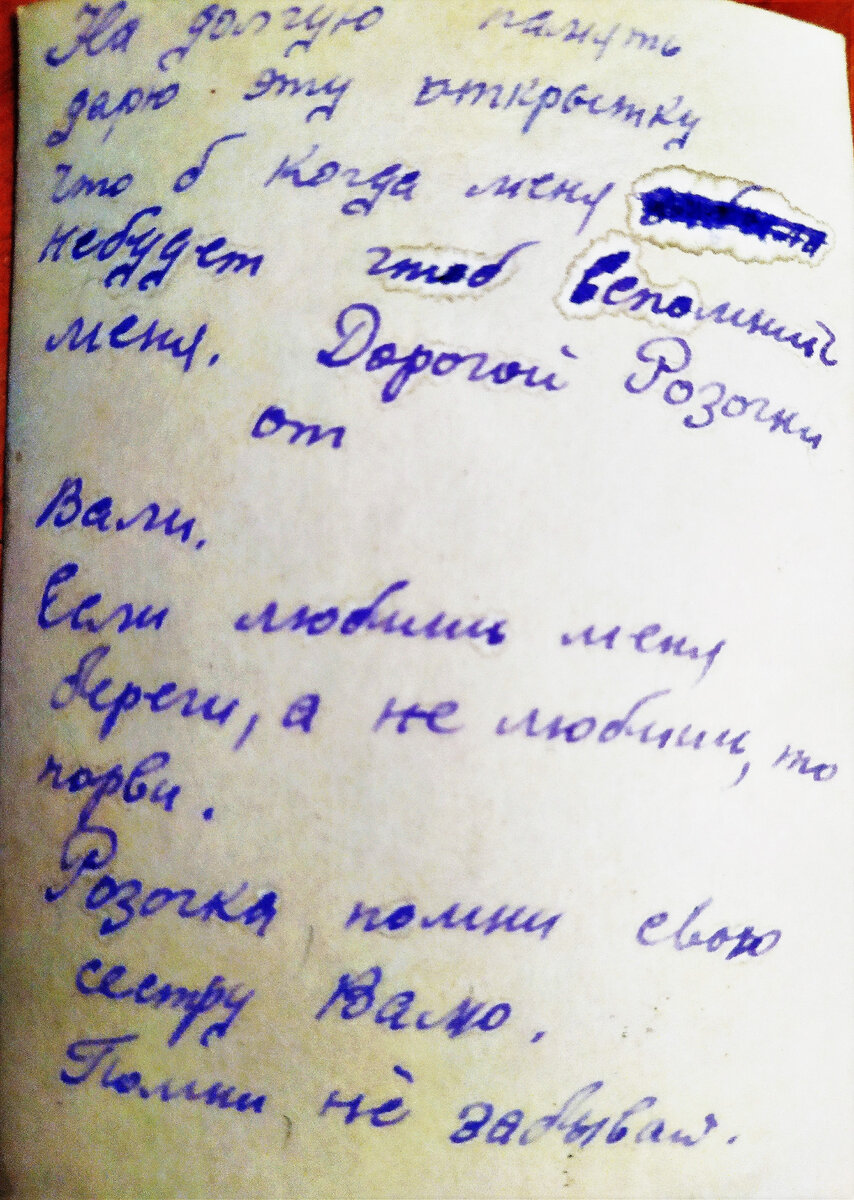 На долгую память
дарю эту открытку
что б когда меня
небудет чтоб вспомний
меня. Дорогой Розочки
от
Вали.
Если любишь меня
береги, а не любиш, то
порви.
Розочка помни свою
сестру Валю.
Помни не забывай.